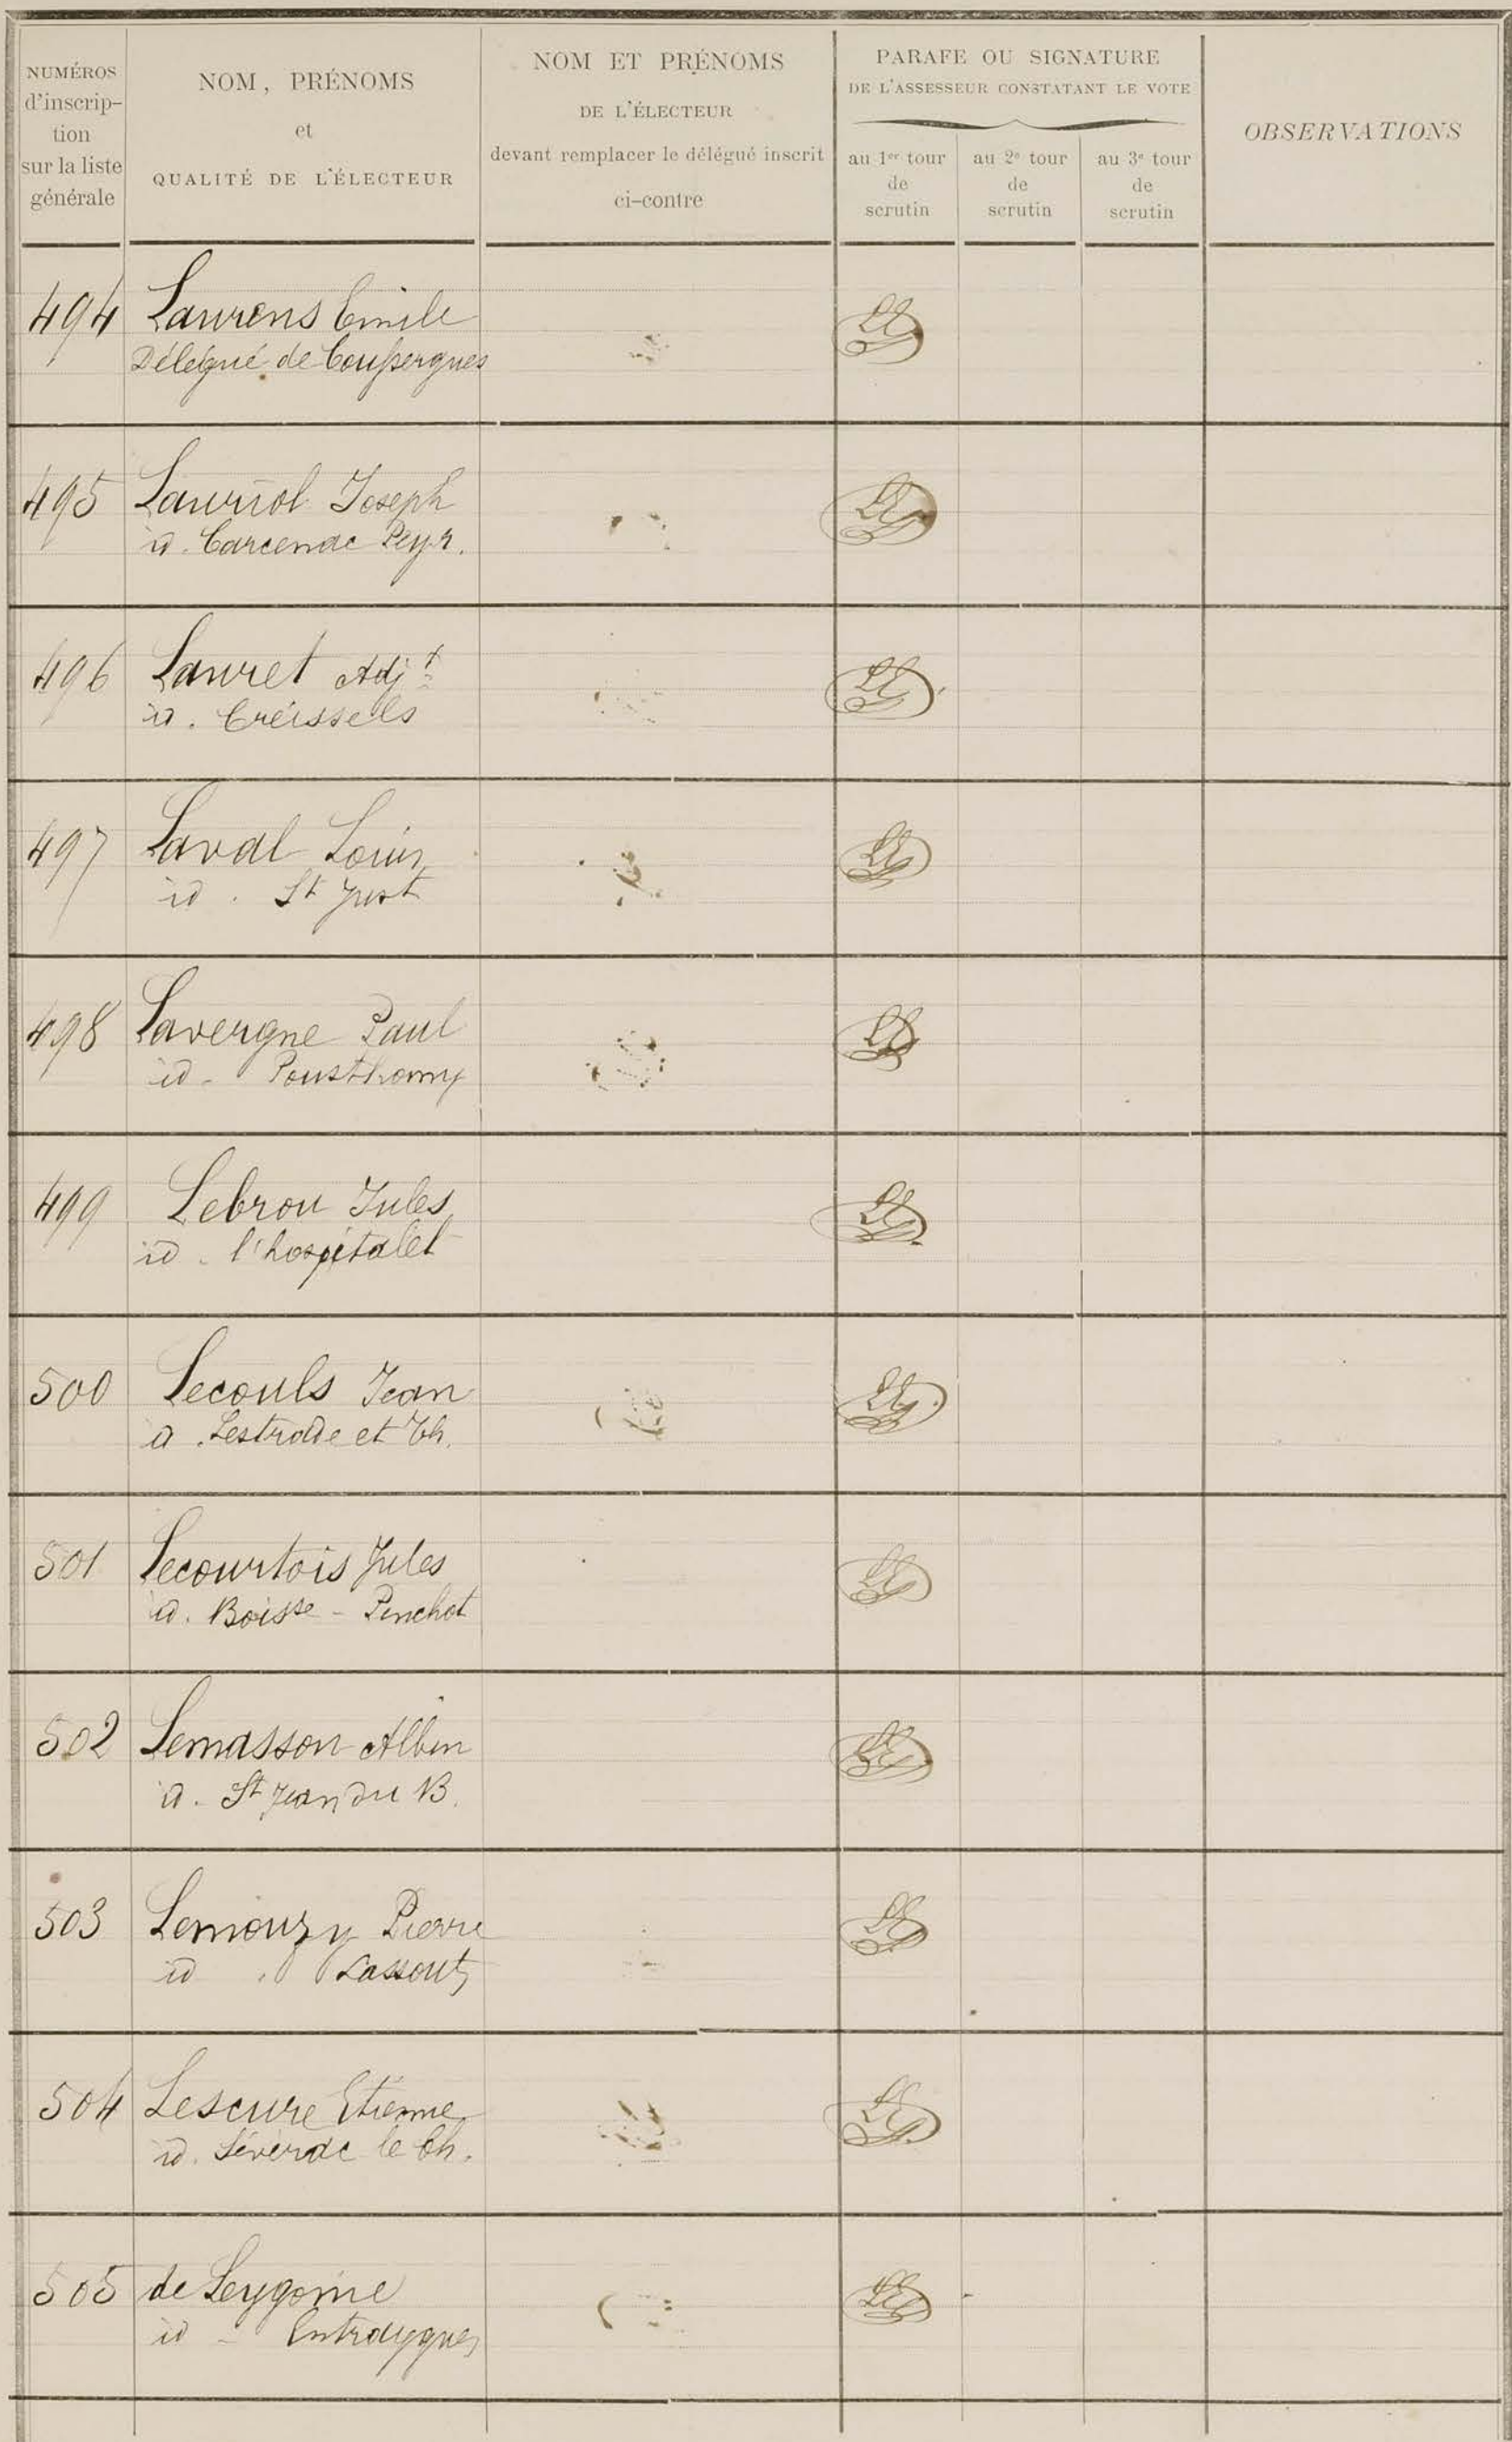 NUMÉROS
d'inscrip-
tion
sur la liste
générale
NOM, PRÉNOMS
et
QUALITÉ DE L'ÉLECTEUR
NOM ET PRÉNOMS
DE L'ÉLECTEUR
devant remplacer le délégué inscrit
ci-contre
PARAFE OU SIGNATURE
DE L'ASSESSEUR CONSTATANT LE VOTE
au 1er tour
de
scrutin
au 2e tour
de
scrutin
au 3e tour
de
scrutin
OBSERVATIONS
494 Laurens Emile
Délégué de Coussergues
495 Lauriol Joseph
id. Carcenac Peyr.
496 Lauret Adjt
id. Creissels
497 Laval Louis
id. St Just
498 Lavergne Paul
id - Pousthomy
499 Lebrou Jules
id. l'hospitalet
500 Lecouls Jean
id. Lestrade et Th.
501 Lecourtois Jules
id. Boisse - Penchot
502 Lemasson Albin
id. St Jean du B.
503 Lemouzy Pierre
id. Lassouts
504 Lescure Etienne
id. Séverac le Ch.
505 de Leygonie
id - Entraygues